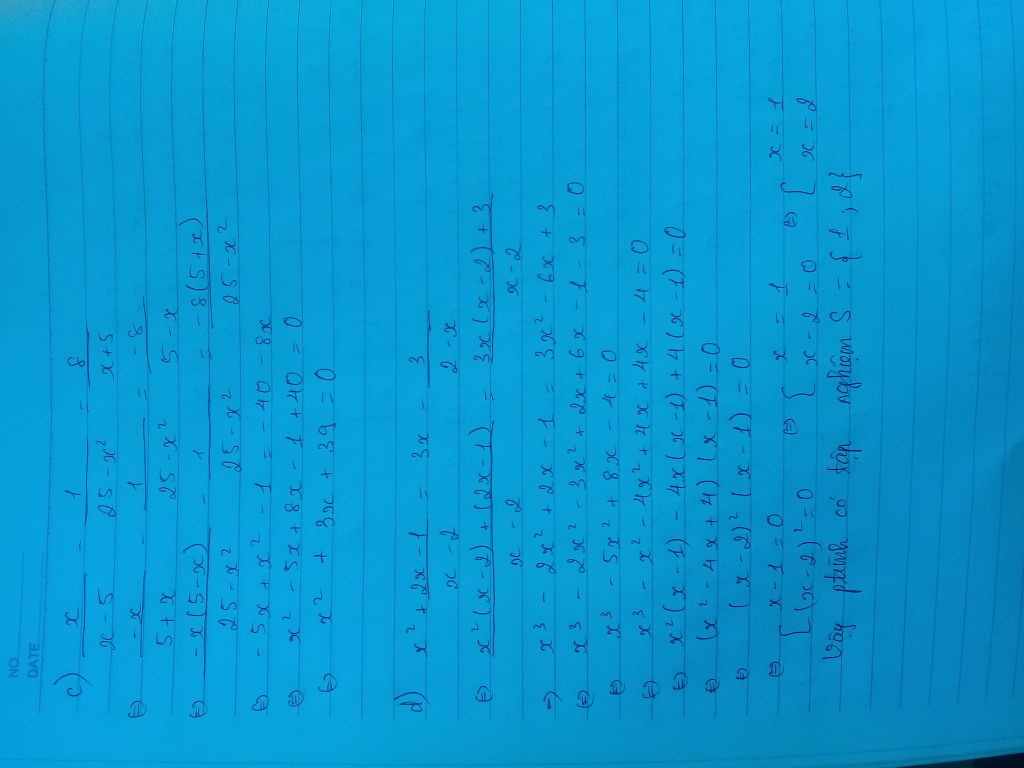 NO.
DATE
c) x/(x-5) - 1/(25-x²) = 8/(x+5)
(=) -x/(5+x) - 1/(25-x²) = -8/(5-x)
(=) -x(5-x)/(25-x²) - 1/(25-x²) = -8(5+x)/(25-x²)
(=) -5x + x² - 1 = -40 - 8x
(=) x² - 5x + 8x - 1 + 40 = 0
(=) x² + 3x + 39 = 0
d) x² + (2x-1)/(x-2) = 3x - 3/(2-x)
(=) (x²(x-2) + (2x-1))/(x-2) = (3x(x-2) + 3)/(x-2)
=) x³ - 2x² + 2x - 1 = 3x² - 6x + 3
(=) x³ - 2x² - 3x² + 2x + 6x - 1 - 3 = 0
(=) x³ - 5x² + 8x - 4 = 0
(=) x³ - x² - 4x² + 4x + 4x - 4 = 0
(=) x²(x-1) - 4x(x-1) + 4(x-1) = 0
(=) (x² - 4x + 4)(x-1) = 0
(=) (x-2)²(x-1) = 0
(=) [ x-1 = 0 (=) [ x = 1 (=) [ x = 1
(x-2)² = 0 x - 2 = 0 x = 2
Vậy ptrình có tập nghiệm S = {1, 2}